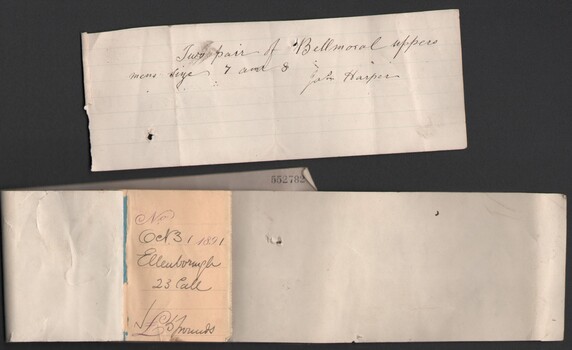 Two pair of Bellmoral uppers
mens size 7 and 8 John Harper
552782
No
Oct 31 1891
Ellenborough
23 Call